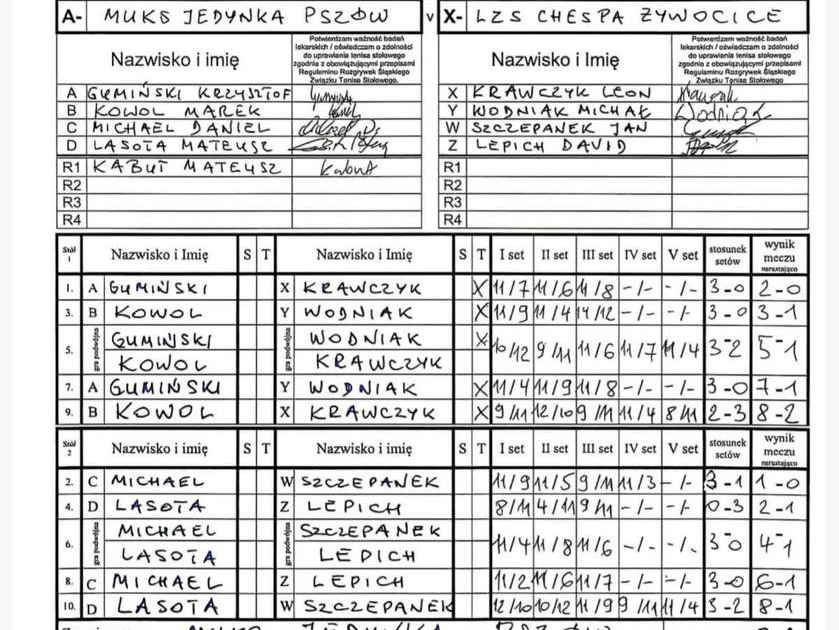 A- MUKS JEDYNKA PSZÓW v X- LZS CHESPA ŻYWOCICE
Nazwisko i imię Potwierdzam ważność badań lekarskich / oświadczam o zdolności do uprawiania tenisa stołowego zgodnie z obowiązującymi przepisami Regulaminu Rozgrywek Śląskiego Związku Tenisa Stołowego. Nazwisko i imię Potwierdzam ważność badań lekarskich / oświadczam o zdolności do uprawiania tenisa stołowego zgodnie z obowiązującymi przepisami Regulaminu Rozgrywek Śląskiego Związku Tenisa Stołowego.
A GUMIŃSKI KRZYSZTOF X KRAWCZYK LEON
B KOWOL MAREK Y WODNIAK MICHAŁ Wodniak
C MICHAEL DANIEL W SZCZEPANEK JAN
D LASOTA MATEUSZ Z LEPICH DAVID
R1 KABUT MATEUSZ Kabut R1
R2 R2
R3 R3
R4 R4
Stół 1 Nazwisko i Imię S T Nazwisko i Imię S T I set II set III set IV set V set stosunek setów wynik meczu narastająco
1. A GUMIŃSKI X KRAWCZYK X 11/7 11/6 11/8 -/- -/- 3-0 2-0
3. B KOWOL Y WODNIAK X 11/9 11/4 14/12 -/- -/- 3-0 3-1
5. gra podwójna GUMIŃSKI KOWOL gra podwójna WODNIAK KRAWCZYK X 10/12 9/11 11/6 11/7 11/4 3-2 5-1
7. A GUMIŃSKI Y WODNIAK X 11/4 11/9 11/8 -/- -/- 3-0 7-1
9. B KOWOL X KRAWCZYK X 9/11 12/10 9/11 11/4 8/11 2-3 8-2
Stół 2 Nazwisko i imię S T Nazwisko i imię S T I set II set III set IV set V set stosunek setów wynik meczu narastająco
2. C MICHAEL W SZCZEPANEK 11/9 11/5 9/11 11/3 -/- 3-1 1-0
4. D LASOTA Z LEPICH 8/11 4/11 9/11 -/- -/- 0-3 2-1
6. gra podwójna MICHAEL LASOTA gra podwójna SZCZEPANEK LEPICH 11/4 11/8 11/6 -/- -/- 3-0 4-1
8. C MICHAEL Z LEPICH 11/2 11/6 11/7 -/- -/- 3-0 6-1
10. D LASOTA W SZCZEPANEK 12/10 10/12 11/9 9/11 11/4 3-2 8-1